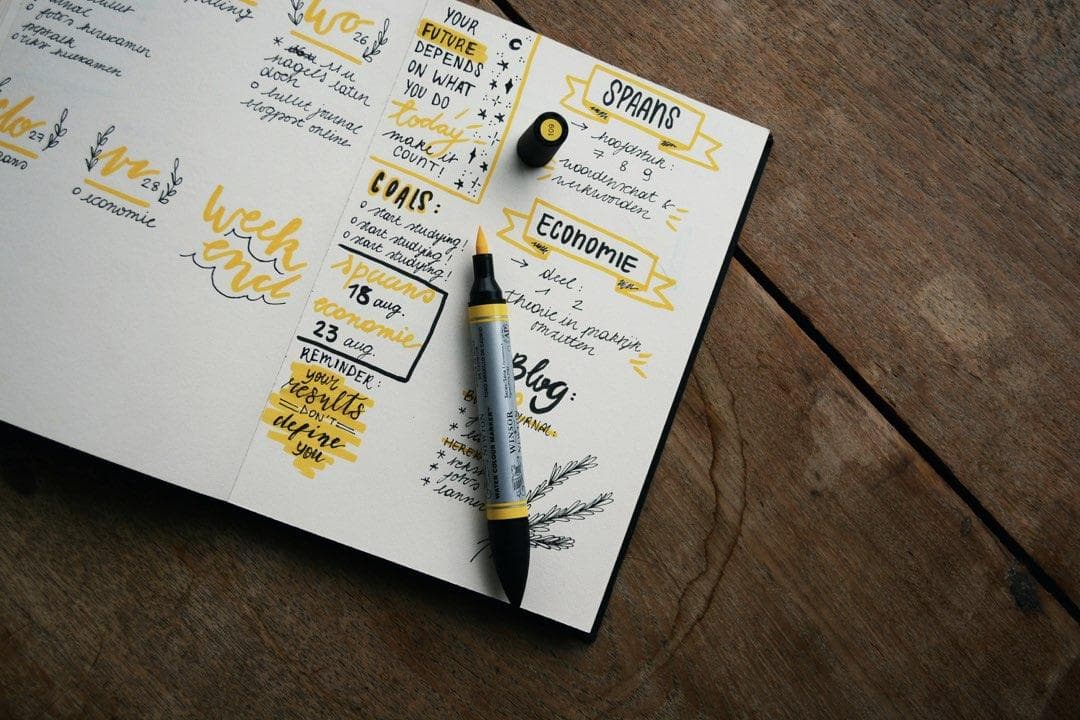 o foto's
o
wo 26
* nu
nagels laten
doen
o bullet journal
blogpost online
do 27
vr 28
o economie
week
end
YOUR
FUTURE
DEPENDS
ON WHAT
YOU DO
today
make it
COUNT!
GOALS:
o start studying!
o start studying!
o start studying!
spaans
18 aug.
economie
23 aug.
REMINDER:
your
results
DON'T
define
you
SPAANS
→ hoofdstuk:
7 8 9
woordenschat &
werkwoorden
ECONOMIE
→ deel:
1 2
theorie in praktijk
omzetten
Blog:
* foto's
109
WINSOR
WATER COLOUR MARKER